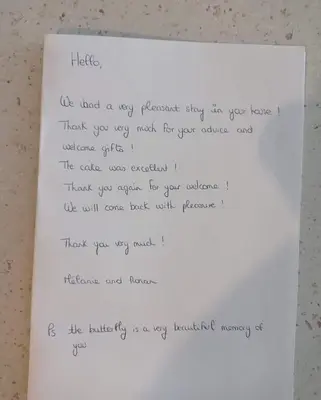 Hello,
We had a very pleasant stay in your house !
Thank you very much for your advice and
welcome gifts !
The cake was excellent !
Thank you again for your welcome !
We will come back with pleasure !
Thank you very much !
Mélanie and Ronan
Ps the butterfly is a very beautiful memory of
you